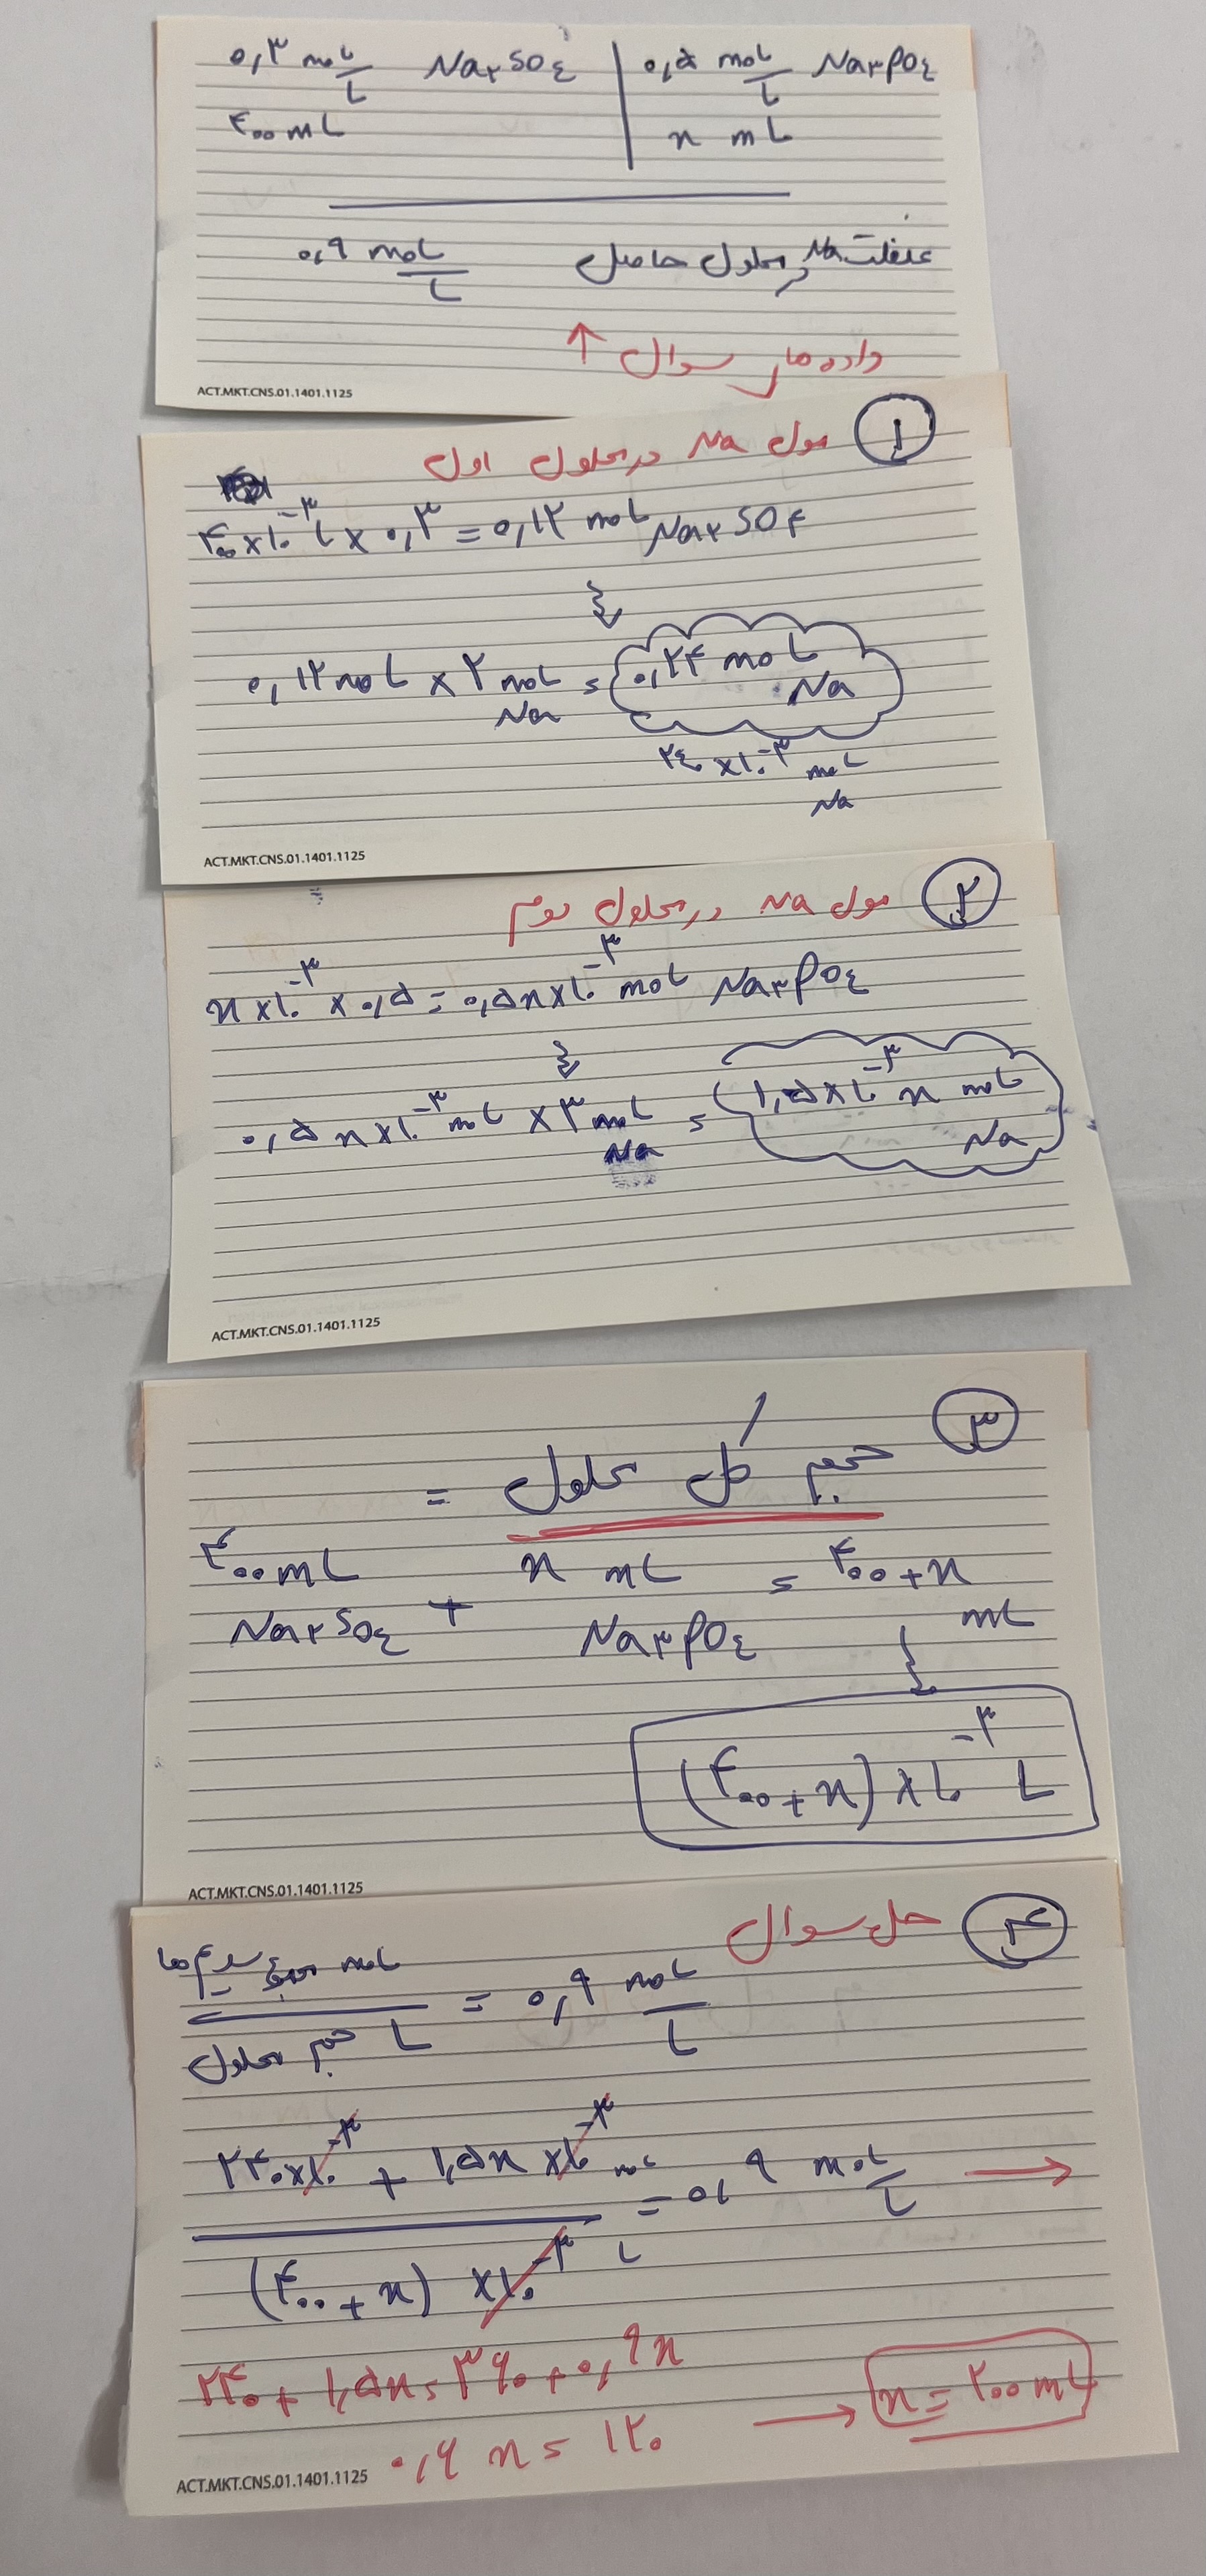 ۰٫۳ mol/L Na۲SO۴ | ۰٫۵ mol/L Na۳PO۴
۴۰۰ mL | x mL
غلظت Na در محلول حاصل ۰٫۹ mol/L
داده های سوال ↑
ACT.MKT.CNS.01.1401.1125
۱ مول Na در محلول اول
۴۰۰×۱۰⁻³ L × ۰٫۳ = ۰٫۱۲ mol Na۲SO۴
۰٫۱۲ mol × ۲ mol Na = ۰٫۲۴ mol Na
۲۴۰×۱۰⁻³ mol Na
ACT.MKT.CNS.01.1401.1125
۲ مول Na در محلول دوم
x×۱۰⁻³ × ۰٫۵ = ۰٫۵x×۱۰⁻³ mol Na۳PO۴
۰٫۵x×۱۰⁻³ mol × ۳ mol Na = ۱٫۵×۱۰⁻³ x mol Na
ACT.MKT.CNS.01.1401.1125
۳ حجم کل محلول =
۴۰۰ mL Na۲SO۴ + x mL Na۳PO۴ = ۴۰۰+x mL
(۴۰۰+x)×۱۰⁻³ L
ACT.MKT.CNS.01.1401.1125
۴ حل سوال
mol مجموع سدیم ها / L حجم محلول = ۰٫۹ mol/L
(۲۴۰×۱۰⁻³ + ۱٫۵x×۱۰⁻³ mol) / ((۴۰۰+x)×۱۰⁻³ L) = ۰٫۹ mol/L →
۲۴۰ + ۱٫۵x = ۳۶۰ + ۰٫۹x
۰٫۶x = ۱۲۰ → x = ۲۰۰ mL
ACT.MKT.CNS.01.1401.1125